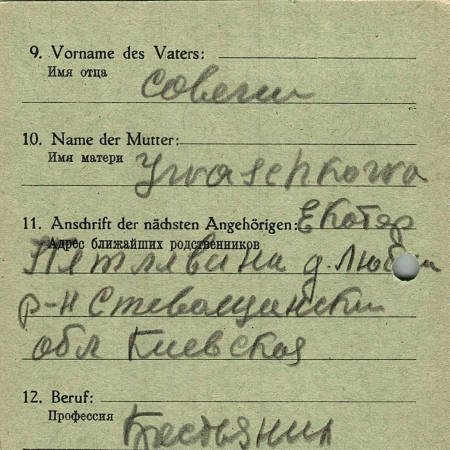 9. Vorname des Vaters:
Имя отца
Савели
10. Name der Mutter:
Имя матери
Iwaschkowa
11. Anschrift der nächsten Angehörigen: Екатер
Адрес ближайших родственников
д.
р-н
обл Киевская
12. Beruf:
Профессия
Крестьянин